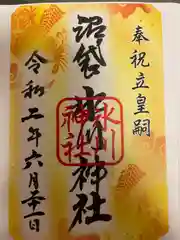 奉祝立皇嗣
沼袋
氷川神社
氷川
神社
令和二年六月二十一日